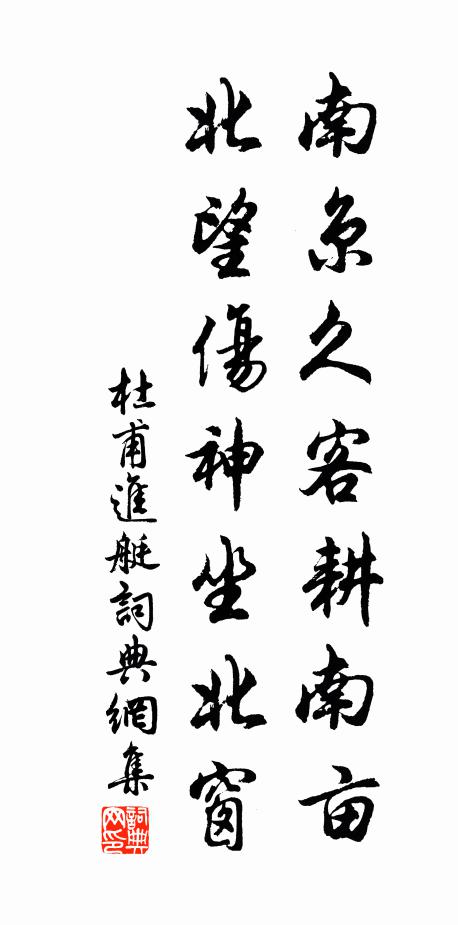 南京久客耕南亩
北望傷神坐北窗
杜甫進艇詞典網集
詞典网印